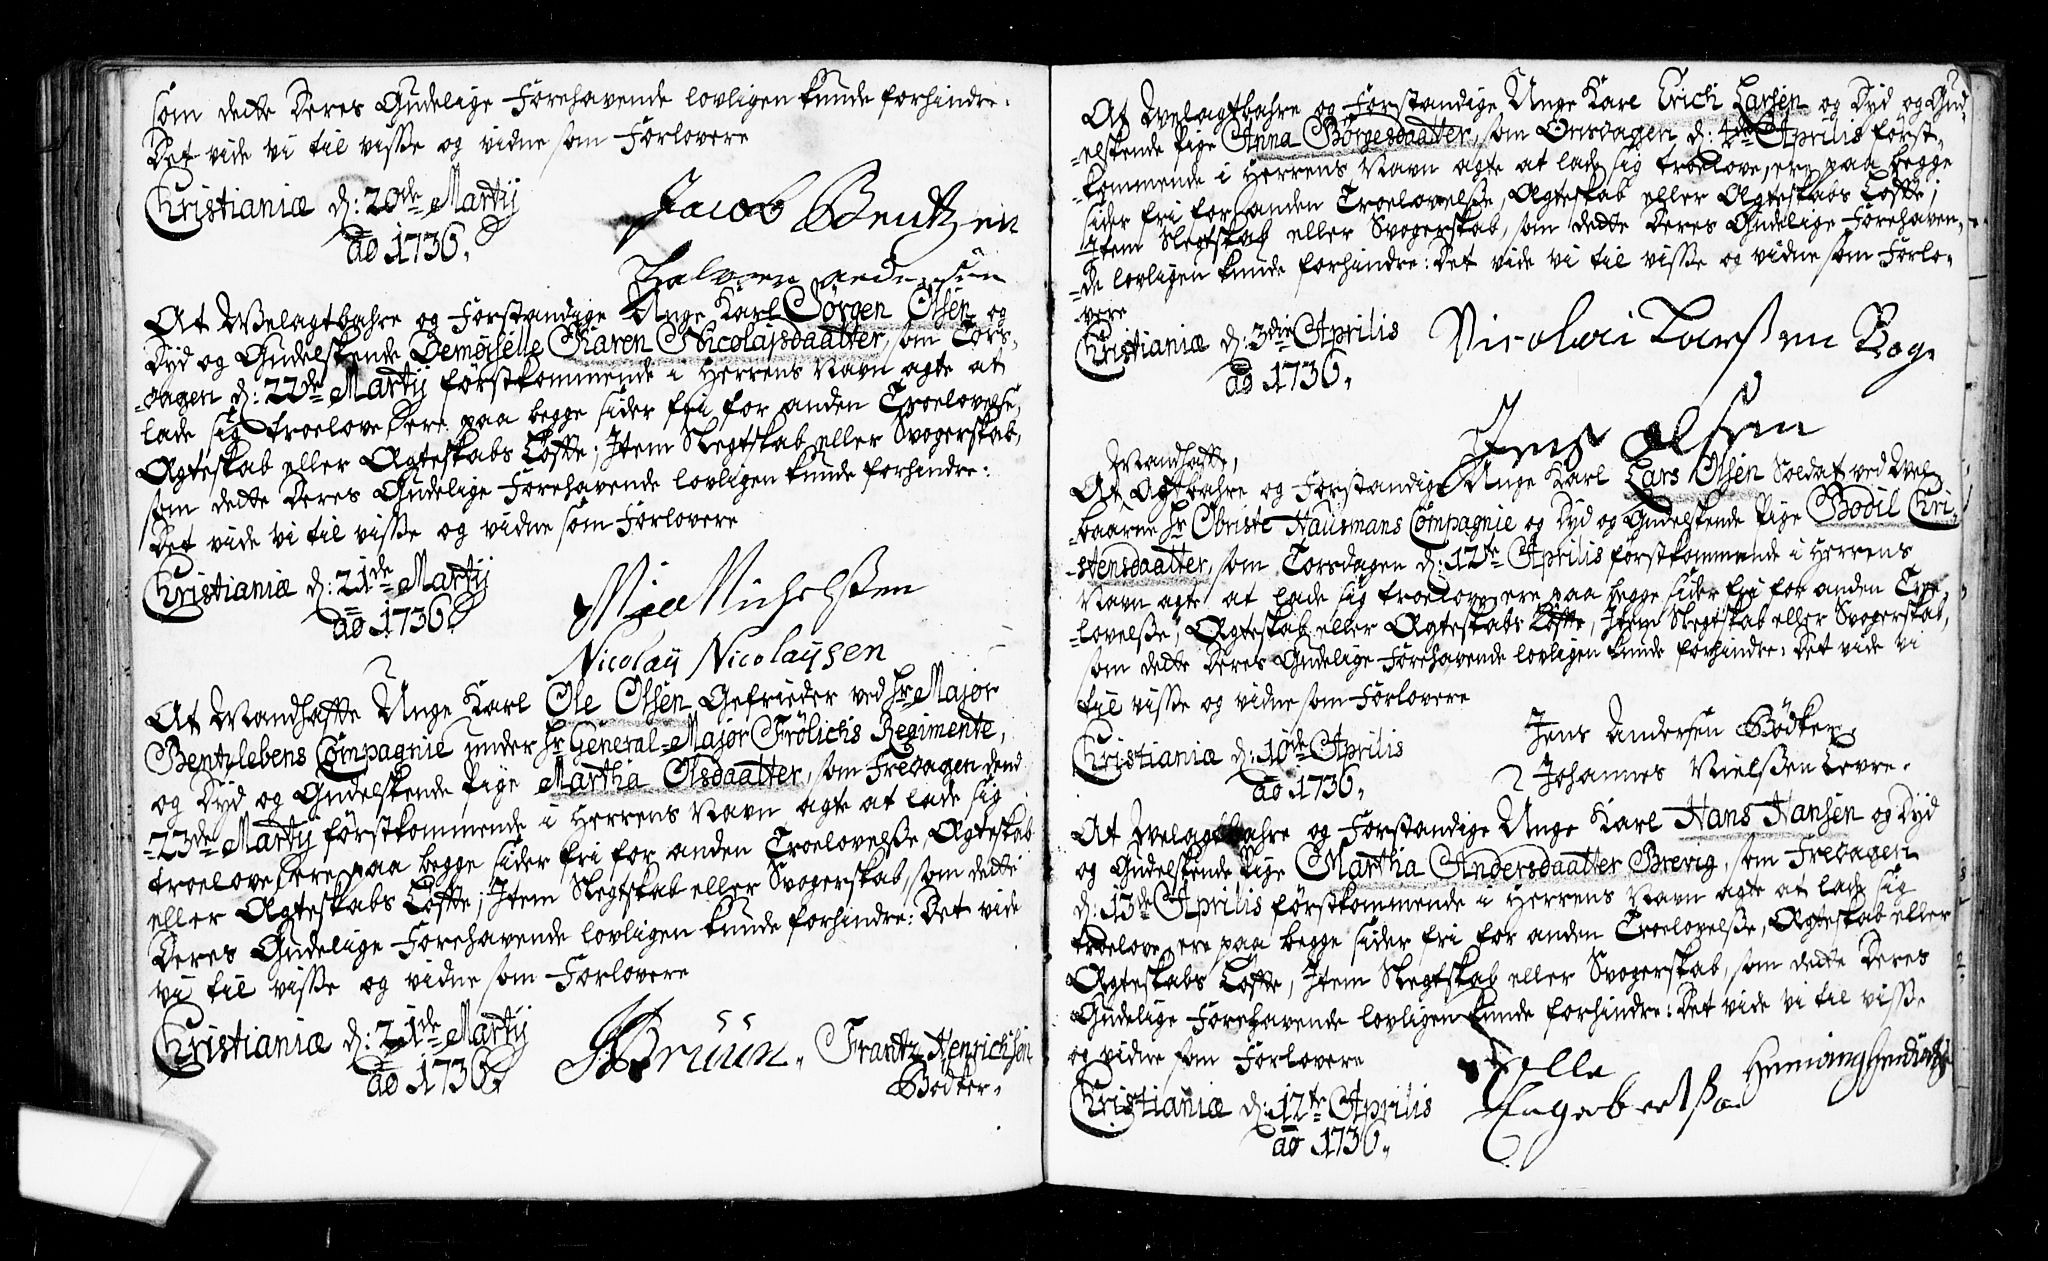 som dette Deres Gudelige Forehavende lovligen kunde forhindre.
Det vide vi til visse og vidne som Forlovere
Christianiæ d: 20de Martij
ao 1736.
Jacob Bentzen
Halvor andersen
At Welagtbahre og Forstandige Unge Karl Jörgen Olsen og
Dyd og Gudelskende Demoiselle Karen Nicolajsdaatter, som Tors-
-dagen d: 22de Martij förstkommende i Herrens Navn agte at
lade sig troelove ere paa begge sider fri for anden Troelovelse,
Ægteskab eller Ægteskabs Löffte; Item Slegtskab eller Svogerskab,
som dette Deres Gudelige Forehavende lovligen kunde forhindre:
Det vide vi til visse og vidne som Forlovere
Christianiæ d: 21de Martij
ao 1736.
Nicolaij Nicolaijsen
At Mandhaffte Unge Karl Ole Olsen Gefrieder ved Hr Major
Bentzlebens Compagnie under Hr General-Major Frölichs Regimente,
og Dyd og Gudelskende Pige Martha Olsdaatter, som Fredagen dend
-23de Martij förstkommende i Herrens Navn agte at lade sig
troelove ere paa begge sider fri for anden Troelovelse, Ægteskab
eller Ægteskabs Löffte; Item Slegtskab eller Svogerskab, som dette
Deres Gudelige Forehavende lovligen kunde forhindre: Det vide
vi til visse og vidne som Forlovere
Christianiæ d: 21de Martij
ao 1736.
Bruun. Frantz Henrichsön
Bödker.
At Welagtbahre og Forstandige Unge Karl Erich Larsen og Dyd og Gud-
-elskende Pige Anna Börgesdaatter, som Onsdagen d: 4de Aprilis först-
-kommende i Herrens Navn agte at lade sig troelove, ere paa begge
sider fri for anden Troelovelse, Ægteskab eller Ægteskabs Löffte;
Item Slegtskab eller Svogerskab, som dette Deres Gudelige Forehaven-
-de lovligen kunde forhindre: Det vide vi til visse og vidne som Forlo-
vere
Christianiæ d: 3die Aprilis
ao 1736.
Nicolai Larssen
Jens olsen
Mandhaffte,
At Agtbahre og Forstandige Unge Karl Lars Olsen Soldat ved Wel-
-baarne Hr Obriste Hausmans Compagnie og Dyd og Gudelskende Pige Bodil Chri-
-stensdaatter, som Torsdagen d: 12te Aprilis förstkommende i Herrens
Navn agte at lade sig troelove, ere paa begge sider fri for anden Troe-
-lovelse, Ægteskab eller Ægteskabs Löffte, Item Slegtskab eller Svogerskab,
som dette Deres Gudelige Forehavende lovligen kunde forhindre: Det vide vi
til visse og vidne som Forlovere
Christianiæ d: 10de Aprilis
ao 1736.
Jens Andersen Bödker.
Johannes Nielssen
At Welagtbahre og Forstandige Unge Karl Hans Hansen og Dyd
og Gudelskende Pige Martha Andersdaatter Brevig, som Fredagen
d: 13de Aprilis förstkommende i Herrens Navn agte at lade sig
troelove, ere paa begge sider fri for anden Troelovelse, Ægteskab eller
Ægteskabs Löffte, Item Slegtskab eller Svogerskab, som dette Deres
Gudelige Forehavende lovligen kunde forhindre: Det vide vi til visse
og vidne som Forlovere
Christianiæ d: 12te Aprilis
ao 1736.